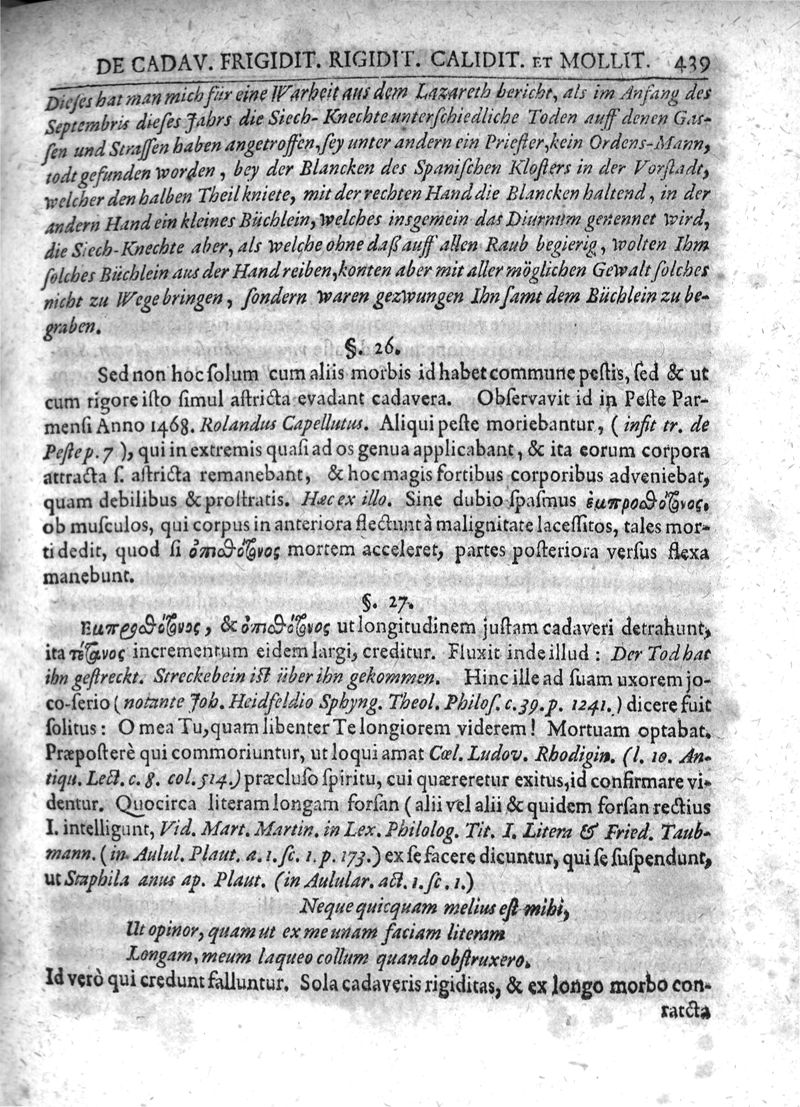 DE CADAV. FRIGIDIT. RIGIDIT. CALIDIT. ET MOLLIT. 439
Dieſes hat man mich für eine Warheit aus dem Lazareth bericht, als im Anfang des
Septembris dieſes Jahrs die Siech-Knechte unterſchiedliche Toden auff denen Gaſ-
ſen und Straſſen haben angetroffen, ſey unter andern ein Prieſter, kein Ordens-Mann,
todt gefunden worden, bey der Blancken des Spaniſchen Kloſters in der Vorſtadt,
welcher den halben Theil kniete, mit der rechten Hand die Blancken haltend, in der
andern Hand ein kleines Büchlein, welches insgemein das Diurnum genennet wird,
die Siech-Knechte aber, als welche ohne daß auff allen Raub begierig, wolten Ihm
ſolches Büchlein aus der Hand reiben, konten aber mit aller möglichen Gewalt ſolches
nicht zu Wege bringen, ſondern waren gezwungen Ihn ſamt dem Büchlein zu be-
graben.
§. 26.
Sed non hoc ſolum cum aliis morbis id habet commune peſtis, ſed & ut
cum rigore iſto ſimul aſtricta evadant cadavera. Obſervavit id in Peſte Par-
menſi Anno 1468. Rolandus Capellutus. Aliqui peſte moriebantur, (infit tr. de
Peſte p. 7), qui in extremis quaſi ad os genua applicabant, & ita eorum corpora
attracta ſ. aſtricta remanebant, & hoc magis fortibus corporibus adveniebat,
quam debilibus & proſtratis. Hæc ex illo. Sine dubio ſpaſmus ἐμπροσθότονος,
ob muſculos, qui corpus in anteriora flectunt à malignitate laceſſitos, tales mor-
ti dedit, quod ſi ὀπισθότονος mortem acceleret, partes poſteriora verſus flexa
manebunt.
§. 27.
Εμπροσθότονος, & ὀπισθότονος ut longitudinem juſtam cadaveri detrahunt,
ita τέτανος incrementum eidem largi, creditur. Fluxit inde illud : Der Tod hat
ihn geſtreckt. Streckebein iſt über ihn gekommen. Hinc ille ad ſuam uxorem jo-
co-ſerio (notante Joh. Heidfeldio Sphyng. Theol. Philoſ. c. 39. p. 1241.) dicere fuit
ſolitus : O mea Tu, quam libenter Te longiorem viderem! Mortuam optabat.
Præpoſterè qui commoriuntur, ut loqui amat Cœl. Ludov. Rhodigin. (l. 10. An-
tiqu. Lect. c. 8. col. 514.) præcluſo ſpiritu, cui quæreretur exitus, id confirmare vi-
dentur. Quocirca literam longam forſan (alii vel alii & quidem forſan rectius
I. intelligunt, Vid. Mart. Martin. in Lex. Philolog. Tit. I. Litera & Fried. Taub-
mann. (in Aulul. Plaut. a. 1. ſc. 1. p. 173.) ex ſe facere dicuntur, qui ſe ſuſpendunt,
ut Staphila anus ap. Plaut. (in Aulular. act. 1. ſc. 1.)
Neque quicquam melius eſt mihi,
Ut opinor, quam ut ex me unam faciam literam
Longam, meum laqueo collum quando obſtruxero.
Id verò qui credunt falluntur. Sola cadaveris rigiditas, & ex longo morbo con-
ratcta